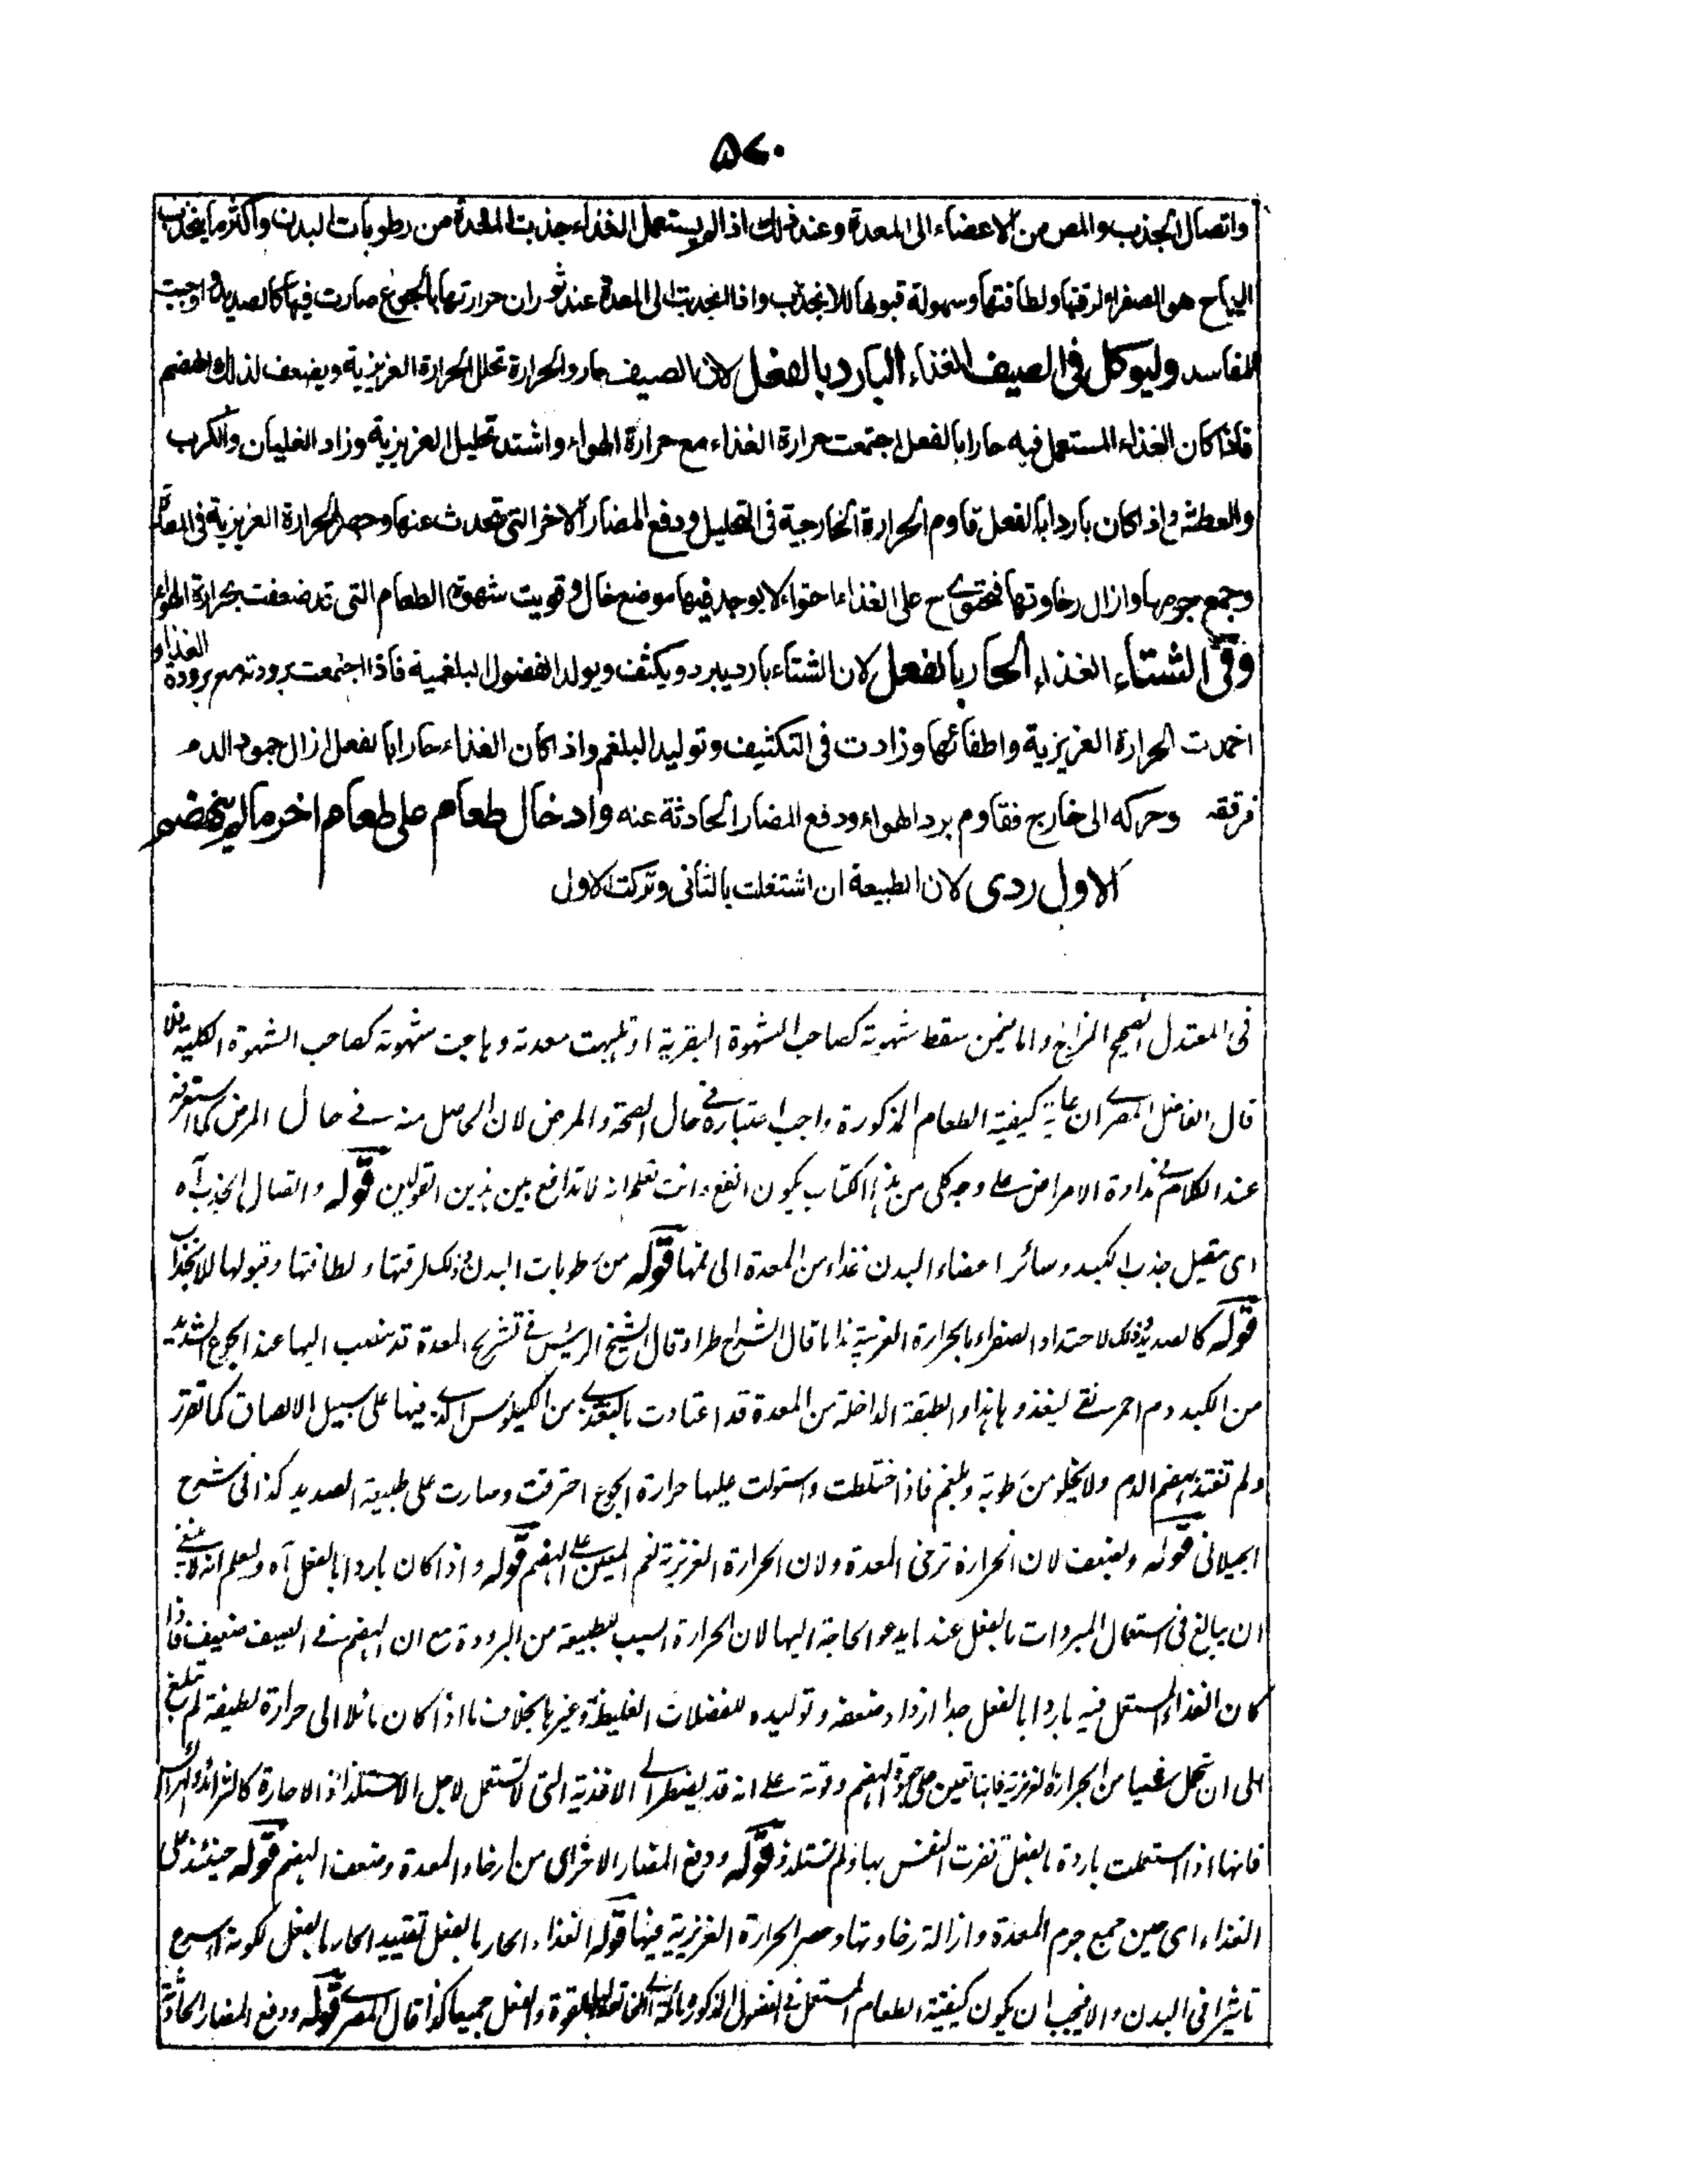 ۵۷۰
واتصال الجذب والمص من الاعضاء الى المعدة وعند ذلك اذا لم يستعمل الغذاء جذبت المعدة من رطوبات البدن واكثر ما ينجذب
اليها ح هو الصفراء لرقتها ولطافتها وسهولة قبولها للانجذاب واذا انجذبت الى المعدة عند ثوران حرارتها بالجوع صارت فيها كالصديد واوجبت
المفاسد وليوكل فى الصيف الغذاء البارد بالفعل لان الصيف حار والحرارة تحلل الحرارة الغريزية ويضعف لذلك الهضم
فاذا كان الغذاء المستعمل فيه حارا بالفعل اجتمعت حرارة الغذاء مع حرارة الهواء واشتد تحليل الغريزية وزاد الغليان والكرب
والعطش واذا كان باردا بالفعل قاوم الحرارة الخارجية فى التحليل ودفع المضار الاخر التى تحدث عنها وحصر الحرارة الغريزية فى المعدة
وجمع جرمها وازال رخاوتها فتحتوى ح على الغذاء احتواء لا يوجد فيها موضع خال وقويت شهوة الطعام التى قد ضعفت بحرارة الهواء
وفى الشتاء الغذاء الحار بالفعل لان الشتاء بارد يبرد ويكثف ويولد الفضول البلغمية فاذا اجتمعت برودته مع برودة الغذاء
اخمدت الحرارة الغريزية واطفائها وزادت فى التكثيف وتوليد البلغم واذا كان الغذاء حارا بالفعل ازال جمود الدم
فرققه وحركه الى خارج فقاوم برد الهواء ودفع المضار الحادثة عنه وادخال طعام على طعام اخر ما لم ينهضم
الاول ردى لان الطبيعة ان اشتغلت بالثانى وتركت الاول
فى المعتدل الصحيح المزاج واما فيمن سقط شهوته كصاحب الشهوة البقرية او تلهبت معدته وهاجت شهوته كصاحب الشهوة الكلبية فلا
قال الفاضل المصرى ان رعاية كيفية الطعام المذكورة واجب اعتباره فى حال الصحة والمرض لان الحاصل منه فى حال المرض كما ستعرفه
عند الكلام فى مداواة الامراض على وجه كلى من هذا الكتاب يكون انفع وانت تعلم انه لا تدافع بين هذين القولين قوله واتصال الجذب آه
اى جذب الكبد وسائر اعضاء البدن غذاء من المعدة الى قوله من رطوبات البدن وذلك لرقتها ولطافتها وقبولها للانجذاب
قوله كالصديد وذلك لاحتداد الصفراء بالحرارة الغريبة هذا ما قال الشراح طرا وقال الشيخ الرئيس فى تشريح المعدة قد ينصب اليها عند الجوع الشديد
من الكبد دم احمر نقى ليغذوها هذا والطبقة الداخلة من المعدة قد اعتادت بالتغذى من الكيلوس الذى فيها على سبيل الالصاق كما تقرر
ولم تغتذ بهضم الدم ولا يخلو من رطوبة وبلغم فاذا اختلطت واستولت عليها حرارة الجوع احترقت وصارت على طبيعة الصديد كذا فى شرح
الجيلانى قوله ويضعف لان الحرارة ترخى المعدة ولان الحرارة الغريزية نعم المعين على الهضم قوله واذا كان باردا بالفعل آه وليعلم انه لا ينبغى
ان يبالغ فى استعمال المبردات بالفعل عند ما يدعو الحاجة اليها لان الحرارة انسب للطبيعة من البرودة مع ان الهضم فى الصيف ضعيف فاذا
كان الغذاء المستعمل فيه باردا بالفعل جدا ازداد ضعفه وتوليده للفضلات الغليظة وغيرها بخلاف ما اذا كان مائلا الى حرارة لطيفة لم تبلغ
الى ان تحلل شيئا من الحرارة الغريزية فانها تعين على جودة الهضم وقوته على انه قد يضطر الى الاغذية التى لا تستعمل لاجل الاستلذاذ الا حارة كالثرائد والهرائس
فانها اذا استعملت باردة بالفعل نفرت النفس بها ولم تستلذ قوله ودفع المضار الاخرى اى من ارخاء المعدة وضعف الهضم قوله حينئذ على
الغذاء اى حين جمع جرم المعدة وازالة رخاوتها وحصر الحرارة الغريزية فيها قوله الغذاء الحار بالفعل تقييد الحار بالفعل لكونه اسرع
تاثيرا فى البدن والا فيجب ان يكون كيفية الطعام المستعمل فى الفصول المذكورة بالقوة والفعل جميعا كذا قال المصرى قوله ودفع المضار الحادثة